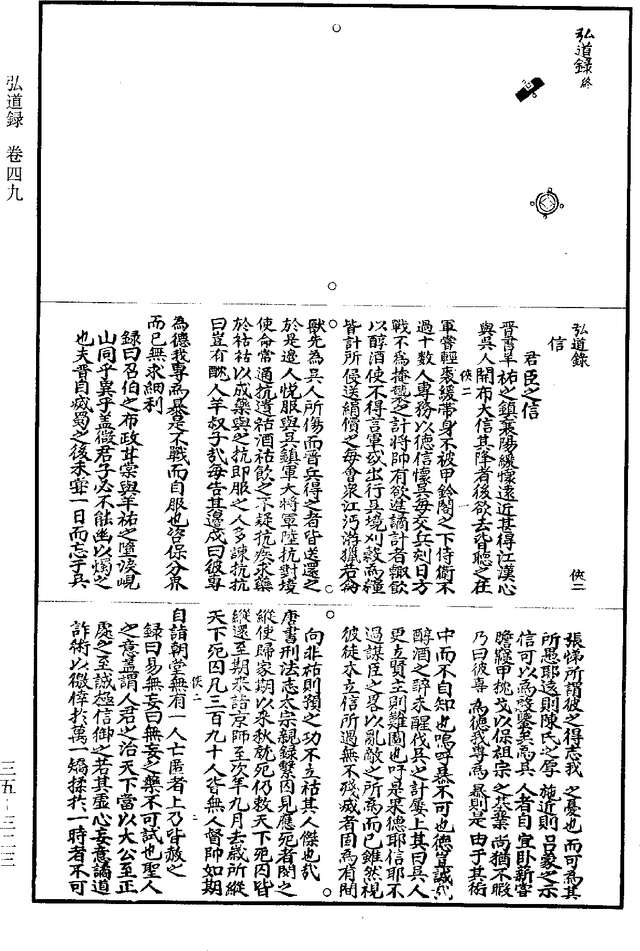 弘道録 卷四九
三五—二一三
弘道録終
弘道録
俠二
信
君臣之信
晉書羊祜之鎮襄陽緩懷遠近甚得江漢心
與吳人開布大信其降者後欲去皆聽之在
俠二
軍嘗輕裘緩帶身不被甲鈴閣之下侍衛不
過十數人專務以德信懷吳每交兵刻日方
戰不為掩襲之計將帥有欲進譎計者輒飲
以醇酒使不得言軍或出行吳境刈穀為糧
皆計所侵送絹償之每會眾江沔游獵若禽
獸先為吳人所傷而晉兵得之者皆送還之
於是邊人悅服與吳鎮軍大將軍陸抗對境
使命常通抗遺祜酒祜飲之不疑抗疾求藥
於祜祜以成藥與之抗即服之人多諫抗抗
曰豈有酖人羊叔子哉每告其邊戍曰彼專
為德我專為暴是不戰而自服也各保分界
而已無求細利
錄曰召伯之布政甘棠與羊祜之墮淚峴
山同乎異乎蓋微君子必不能幽以燭之
也夫晉自滅蜀之後未嘗一日而忘乎吳
張悌所謂彼之得志我之憂也而可為其
所愚耶遠則陳氏之厚施近則呂蒙之示
信可以為殷鑒矣為吳人者自宜卧薪嘗
膽寢甲枕戈以保祖宗之基業尚猶不暇
乃曰彼專為德我專為暴則是由于其術
中而不自知也嗚呼暴不可也德豈誠哉
醇酒之醉未醒伐吳之計屢上其曰吳人
更立賢主則難圖也吁是果德耶信耶不
過謀臣之畧以亂敵之所為而已雖然視
彼徒木立信所過無不殘滅者固為有間
向非祜則預之功不立祜其人傑也哉
唐書刑法志太宗親録繫囚見應死者閔之
縱使歸家期以来秋就死仍敕天下死囚皆
縱還至期来詣京師至次年九月去歲所縱
天下死囚凡三百九十人皆無人督帥如期
俠二
自詣朝堂無有一人亡匿者上乃皆赦之
録曰易無妄曰無妄之藥不可試也聖人
之意蓋謂人君之治天下當以大公至正
處之至誠極信御之若其虛心妄意譎道
詐術以徼倖於萬一矯揉於一時者不可